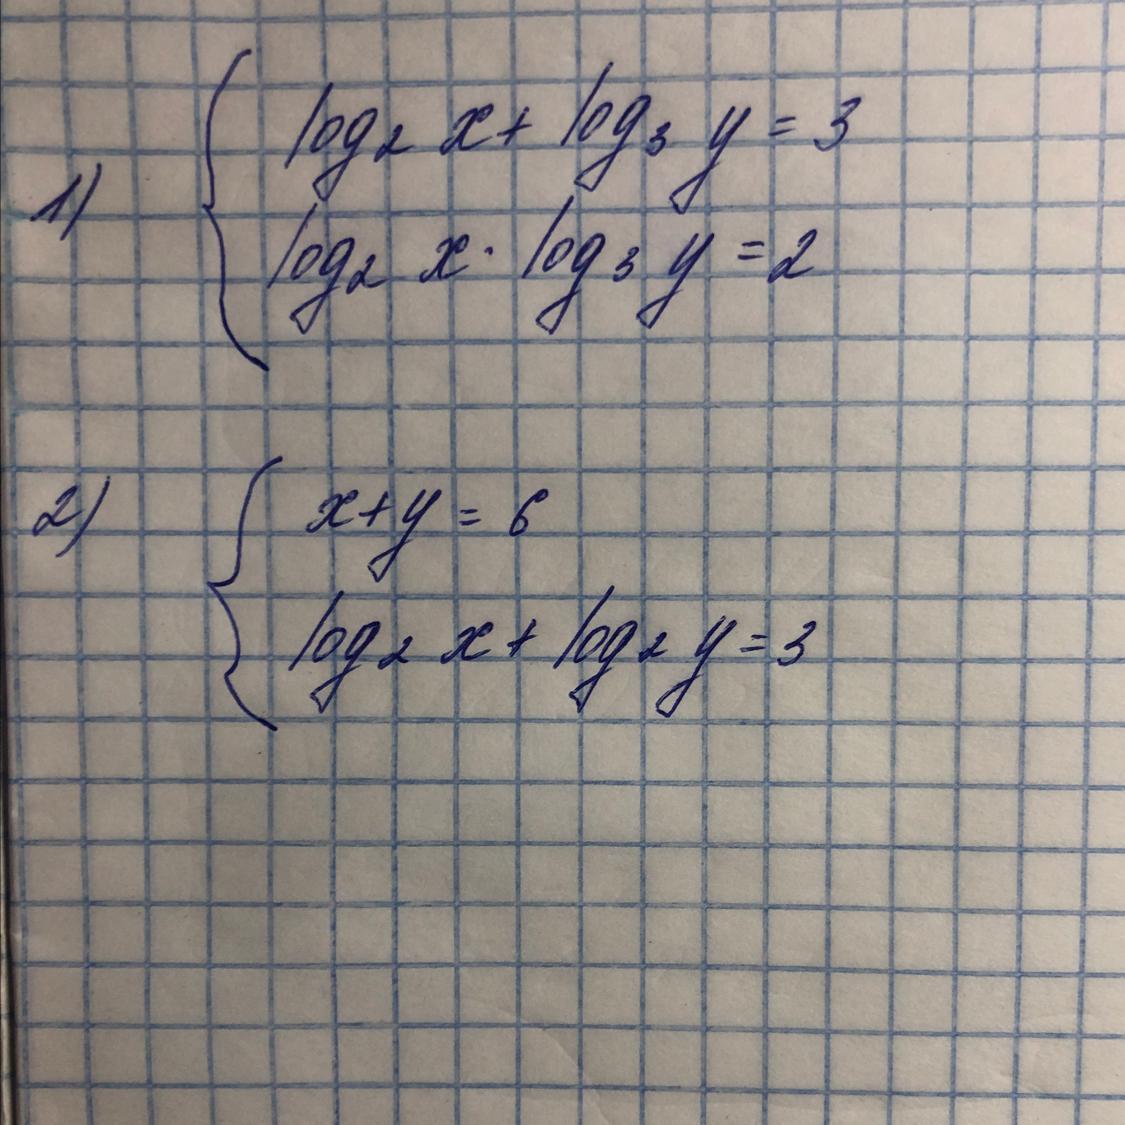 1) { log₂ x + log₃ y = 3
log₂ x · log₃ y = 2
2) { x + y = 6
log₂ x + log₂ y = 3